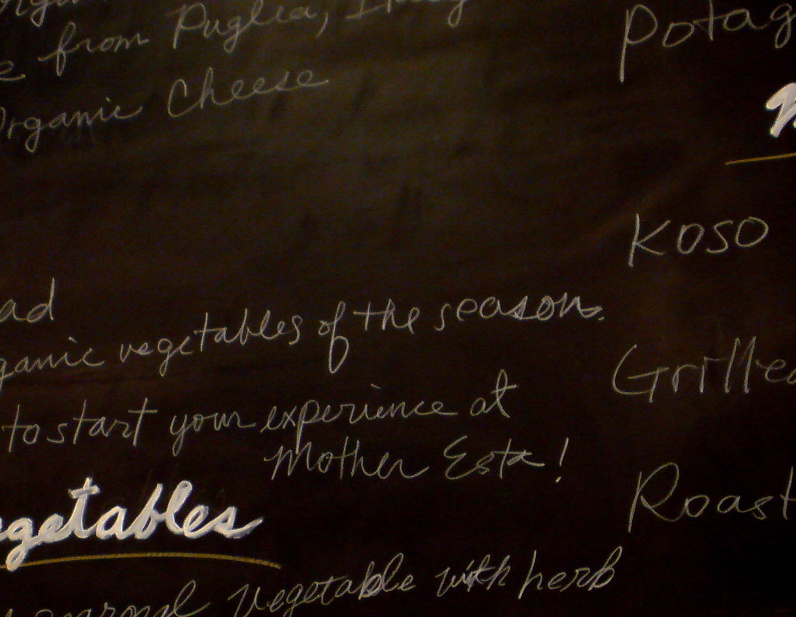 from Puglia, Italy
Organic Cheese
ad
ganic vegetables of the season.
to start your experience at
Mother Esta!
getables
vegetable with herb
Potag
KOSO
Grilled
Roast